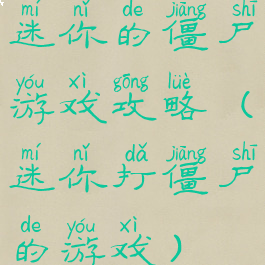 mí nǐ de jiāng shī
迷你的僵尸
yóu xì gōng lüè
游戏攻略（
mí nǐ dǎ jiāng shī
迷你打僵尸
de yóu xì
的游戏）